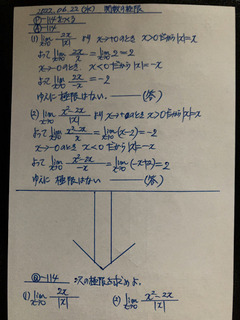 2022.06.22(水) 関数の極限
(1) lim x→0 2x/|x| より x→+0のとき x>0だから|x|=x
よって lim x→0 2x/x = lim x→0 2 = 2
x→-0のとき x<0だから|x|=-x
よって lim x→0 2x/-x = -2
ゆえに極限はない ——(答)
(2) lim x→0 x²-2x/|x| より x→+0のとき x>0だから|x|=x
よって lim x→0 x²-2x/x = lim x→0 (x-2) = -2
x→-0のとき x<0だから|x|=-x
よって lim x→0 x²-2x/-x = lim x→0 (-x+2) = 2
ゆえに極限はない ——(答)
-114 次の極限を求めよ。
(1) lim x→0 2x/|x| (2) lim x→0 x²-2x/|x|